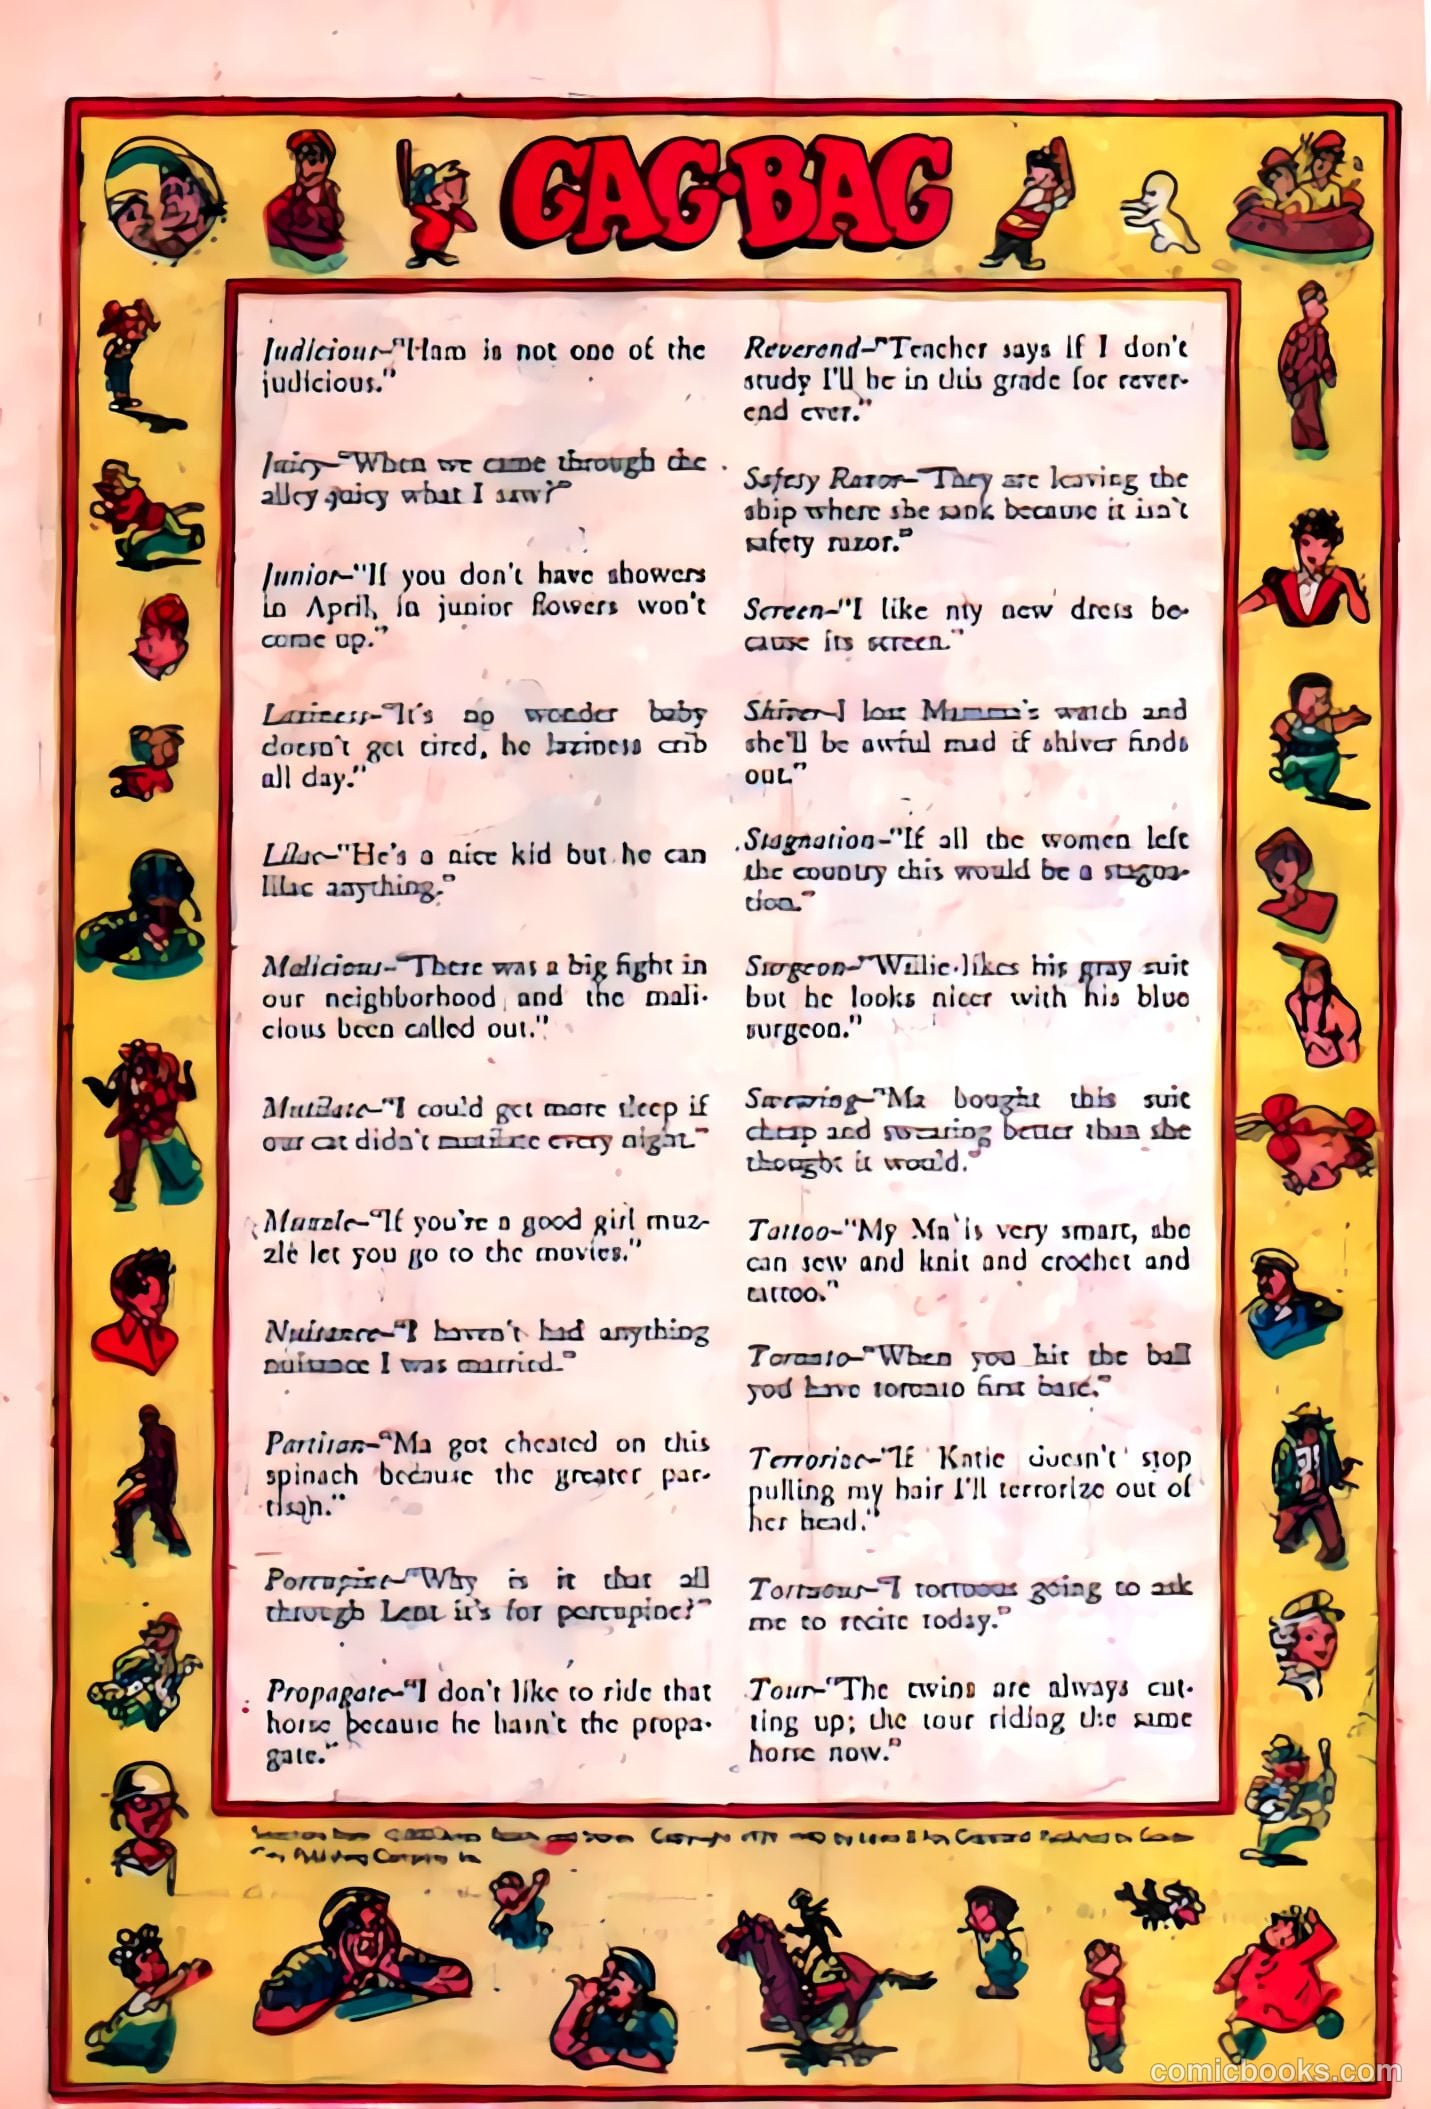 GAG·BAG
Judicious—"Ham is not one of the
judicious."
Juicy—"When we came through the
alley juicy what I saw?"
Junior—"If you don't have showers
in April, in junior flowers won't
come up."
Laziness—"It's no wonder baby
doesn't get tired, he laziness crib
all day."
Lilac—"He's a nice kid but he can
lilac anything."
Malicious—"There was a big fight in
our neighborhood and the mali-
cious been called out."
Mutilate—"I could get more sleep if
our cat didn't mutilate every night."
Muzzle—"If you're a good girl muz-
zle let you go to the movies."
Nuisance—"I haven't had anything
nuisance I was married."
Partisan—"Ma got cheated on this
spinach because the greater par-
tisan."
Porcupine—"Why is it that all
through Lent it's for porcupine?"
Propagate—"I don't like to ride that
horse because he hasn't the propa-
gate."
Reverend—"Teacher says if I don't
study I'll be in this grade for rever-
end ever."
Safety Razor—"They are leaving the
ship where she sank because it isn't
safety razor."
Screen—"I like my new dress be-
cause its screen."
Shiver—I lost Mamma's watch and
she'll be awful mad if shiver finds
out."
Stagnation—"If all the women left
the country this would be a stagna-
tion."
Surgeon—"Willie likes his gray suit
but he looks nicer with his blue
surgeon."
Swearing—"Ma bought this suit
cheap and swearing better than she
thought it would."
Tattoo—"My Ma is very smart, she
can sew and knit and crochet and
tattoo."
Toronto—"When you hit the ball
you have toronto first base."
Terrorize—"If Katie doesn't stop
pulling my hair I'll terrorize out of
her head."
Tortuous—"I tortuous going to ask
me to recite today."
Tour—"The twins are always cut-
ting up; the tour riding the same
horse now."
Publishing Company
comicbooks.com